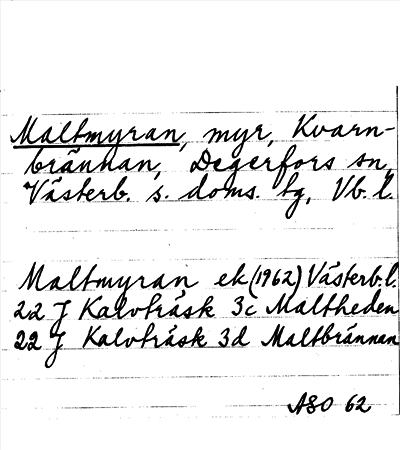 Maltmyran, myr, Kvarn-
brännan, Degerfors sn,
Västerb. s. doms. tg, Vb. l.
Maltmyran ek (1962) Västerb. l.
22 J Kalvträsk 3c Maltheden
22 J Kalvträsk 3d Maltbrännan
ASO 62